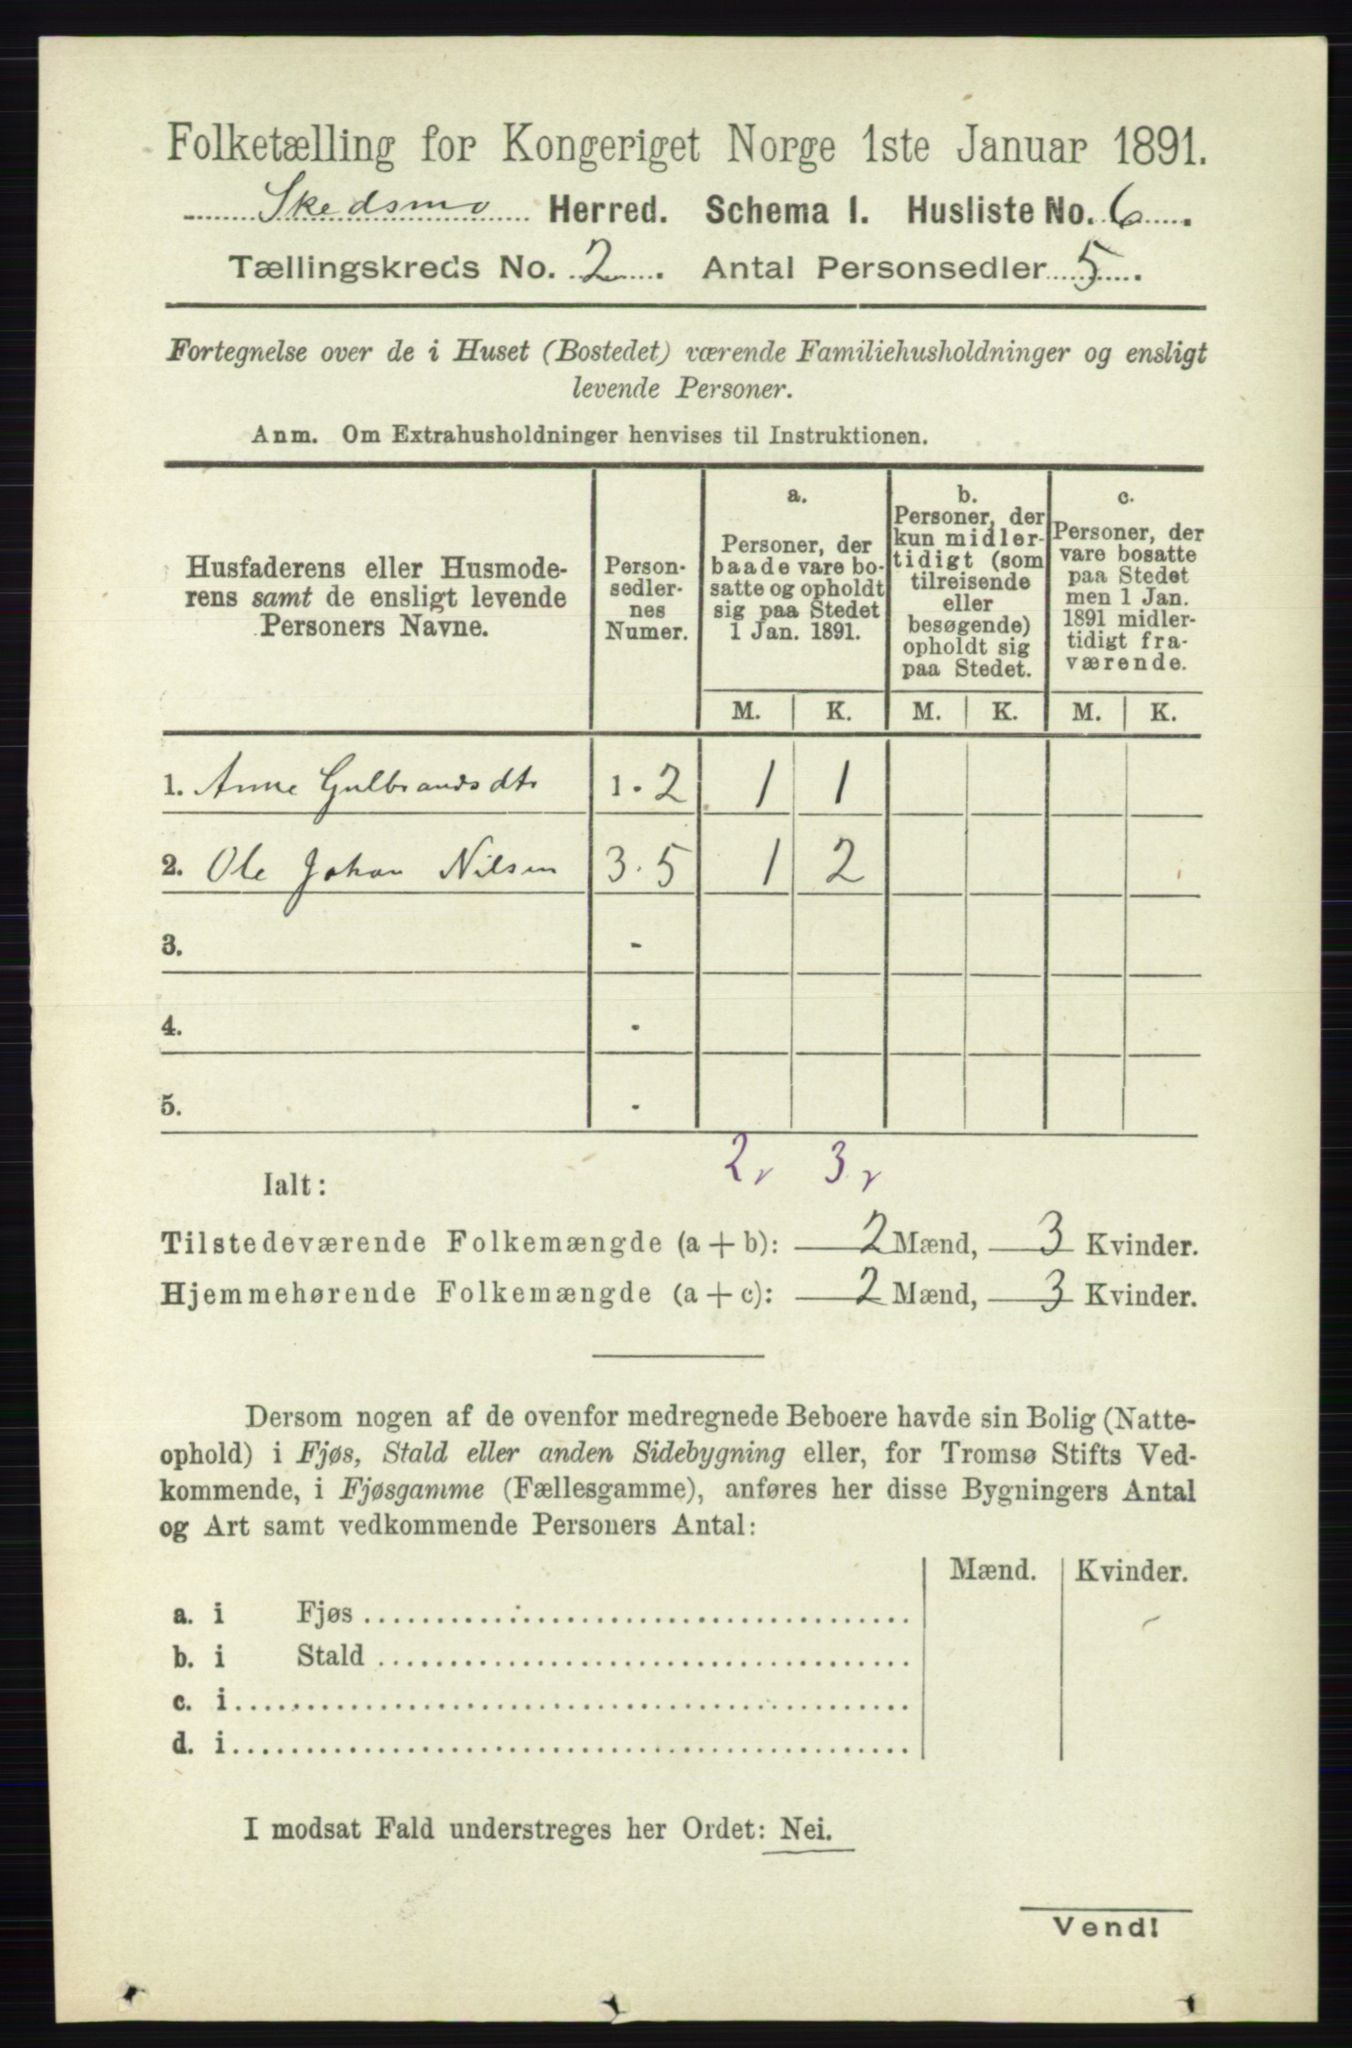 Folketælling for Kongeriget Norge 1ste Januar 1891.
Skedsmo Herred. Schema I. Husliste No. 6.
Tællingskreds No. 2. Antal Personsedler 5.
Fortegnelse over de i Huset (Bostedet) værende Familiehusholdninger og ensligt
levende Personer.
Anm. Om Extrahusholdninger henvises til Instruktionen.
Husfaderens eller Husmode-
rens samt de ensligt levende
Personers Navne.
Person-
sedler-
nes
Numer.
a.
Personer, der
baade vare bo-
satte og opholdt
sig paa Stedet
1 Jan. 1891.
b.
Personer, der
kun midler-
tidigt (som
tilreisende
eller
besøgende)
opholdt sig
paa Stedet.
c.
Personer, der
vare bosatte
paa Stedet
men 1 Jan.
1891 midler-
tidigt fra-
værende.
M. K. M. K. M. K.
1. Anne Gulbrandsdtr 1 - 2 1 1
2. Ole Johan Nilsen 3 - 5 1 2
3. -
4. -
5. -
2 3
Ialt:
Tilstedeværende Folkemængde (a + b): 2 Mænd, 3 Kvinder.
Hjemmehørende Folkemængde (a + c): 2 Mænd, 3 Kvinder.
Dersom nogen af de ovenfor medregnede Beboere havde sin Bolig (Natte-
ophold) i Fjøs, Stald eller anden Sidebygning eller, for Tromsø Stifts Ved-
kommende, i Fjøsgamme (Fællesgamme), anføres her disse Bygningers Antal
og Art samt vedkommende Personers Antal:
Mænd. Kvinder.
a. i Fjøs
b. i Stald
c. i
d. i
I modsat Fald understreges her Ordet: Nei.
Vend!